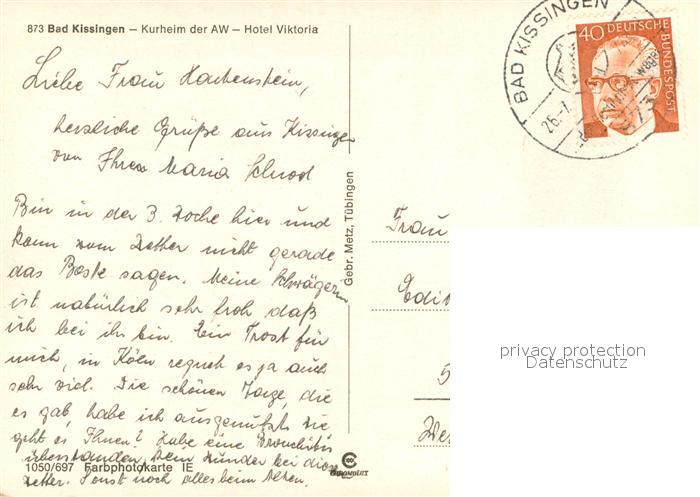 873 Bad Kissingen – Kurheim der AW – Hotel Viktoria
Liebe Frau Hartenstein,
herzliche Grüße aus Kissingen
von Ihrer Maria Schrod
Bin in der 3. Woche hier und
kann vom Wetter nicht gerade
das Beste sagen. Meine Schwägerin
ist natürlich sehr froh daß
ich bei ihr bin. Ein Trost für
mich, in Köln regnet es ja auch
sehr viel. Die schönen Tage, die
es gab, habe ich ausgenutzt. Wie
geht es Ihnen? Habe eine Bronchitis
überstanden, kein Wunder bei diesem
Wetter. Sonst noch alles beim Alten.
1050/697 Farbphotokarte IE
CHROMOLUX
Gebr. Metz, Tübingen
BAD KISSINGEN
26.-7.
873
40
DEUTSCHE BUNDESPOST
Frau
Edit
5
We
privacy protection
Datenschutz